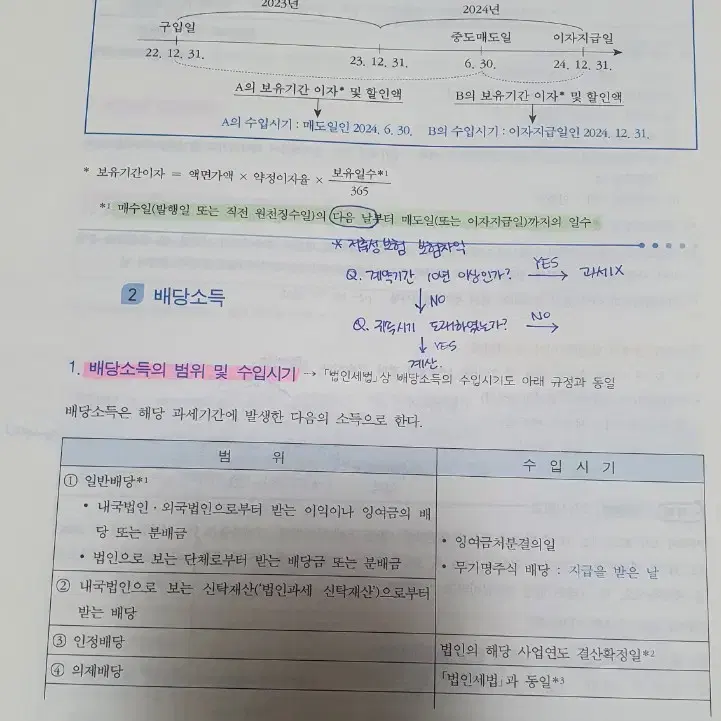 2023년
2024년
구입일
중도매도일
이자지급일
22. 12. 31.
23. 12. 31.
6. 30.
24. 12. 31.
A의 보유기간 이자* 및 할인액
B의 보유기간 이자* 및 할인액
A의 수입시기 : 매도일인 2024. 6. 30.
B의 수입시기 : 이자지급일인 2024. 12. 31.
* 보유기간이자 = 액면가액 × 약정이자율 × 보유일수*1
365
*1 매수일(발행일 또는 직전 원천징수일)의 다음 날부터 매도일(또는 이자지급일)까지의 일수
* 저축성보험 보험차익
Q. 계약기간 10년 이상인가? YES → 과세X
↓ NO
Q. 귀속시기 도래하였는가? NO →
↓ YES
계산.
2 배당소득
1. 배당소득의 범위 및 수입시기 → 「법인세법」상 배당소득의 수입시기도 아래 규정과 동일
배당소득은 해당 과세기간에 발생한 다음의 소득으로 한다.
범 위
수 입 시 기
① 일반배당*1
• 내국법인·외국법인으로부터 받는 이익이나 잉여금의 배
당 또는 분배금
• 법인으로 보는 단체로부터 받는 배당금 또는 분배금
• 잉여금처분결의일
• 무기명주식 배당 : 지급을 받은 날
② 내국법인으로 보는 신탁재산('법인과세 신탁재산')으로부터
받는 배당
③ 인정배당
법인의 해당 사업연도 결산확정일*2
④ 의제배당
「법인세법」과 동일*3